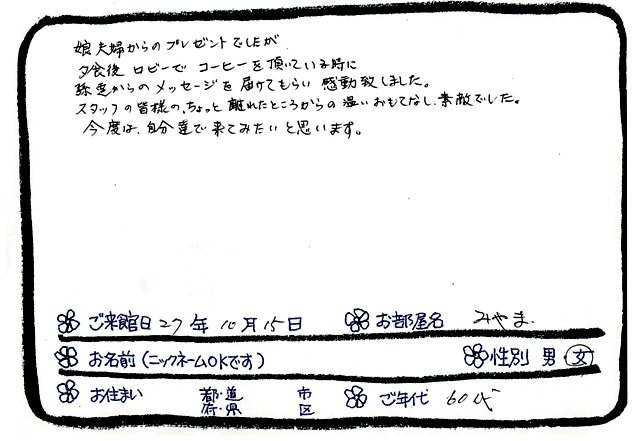 娘夫婦からのプレゼントでしたが
夕食後 ロビーで コーヒーを頂いている時に
孫達からのメッセージを届けてもらい 感動致しました。
スタッフの皆様の、ちょっと離れたところからの温いおもてなし、素敵でした。
今度は、自分達で来てみたいと思います。
ご来館日 27年 10月 15日 お部屋名 みやま.
お名前(ニックネームOKです) 性別 男・女
お住まい 都・道 府・県 市 区 ご年代 60代